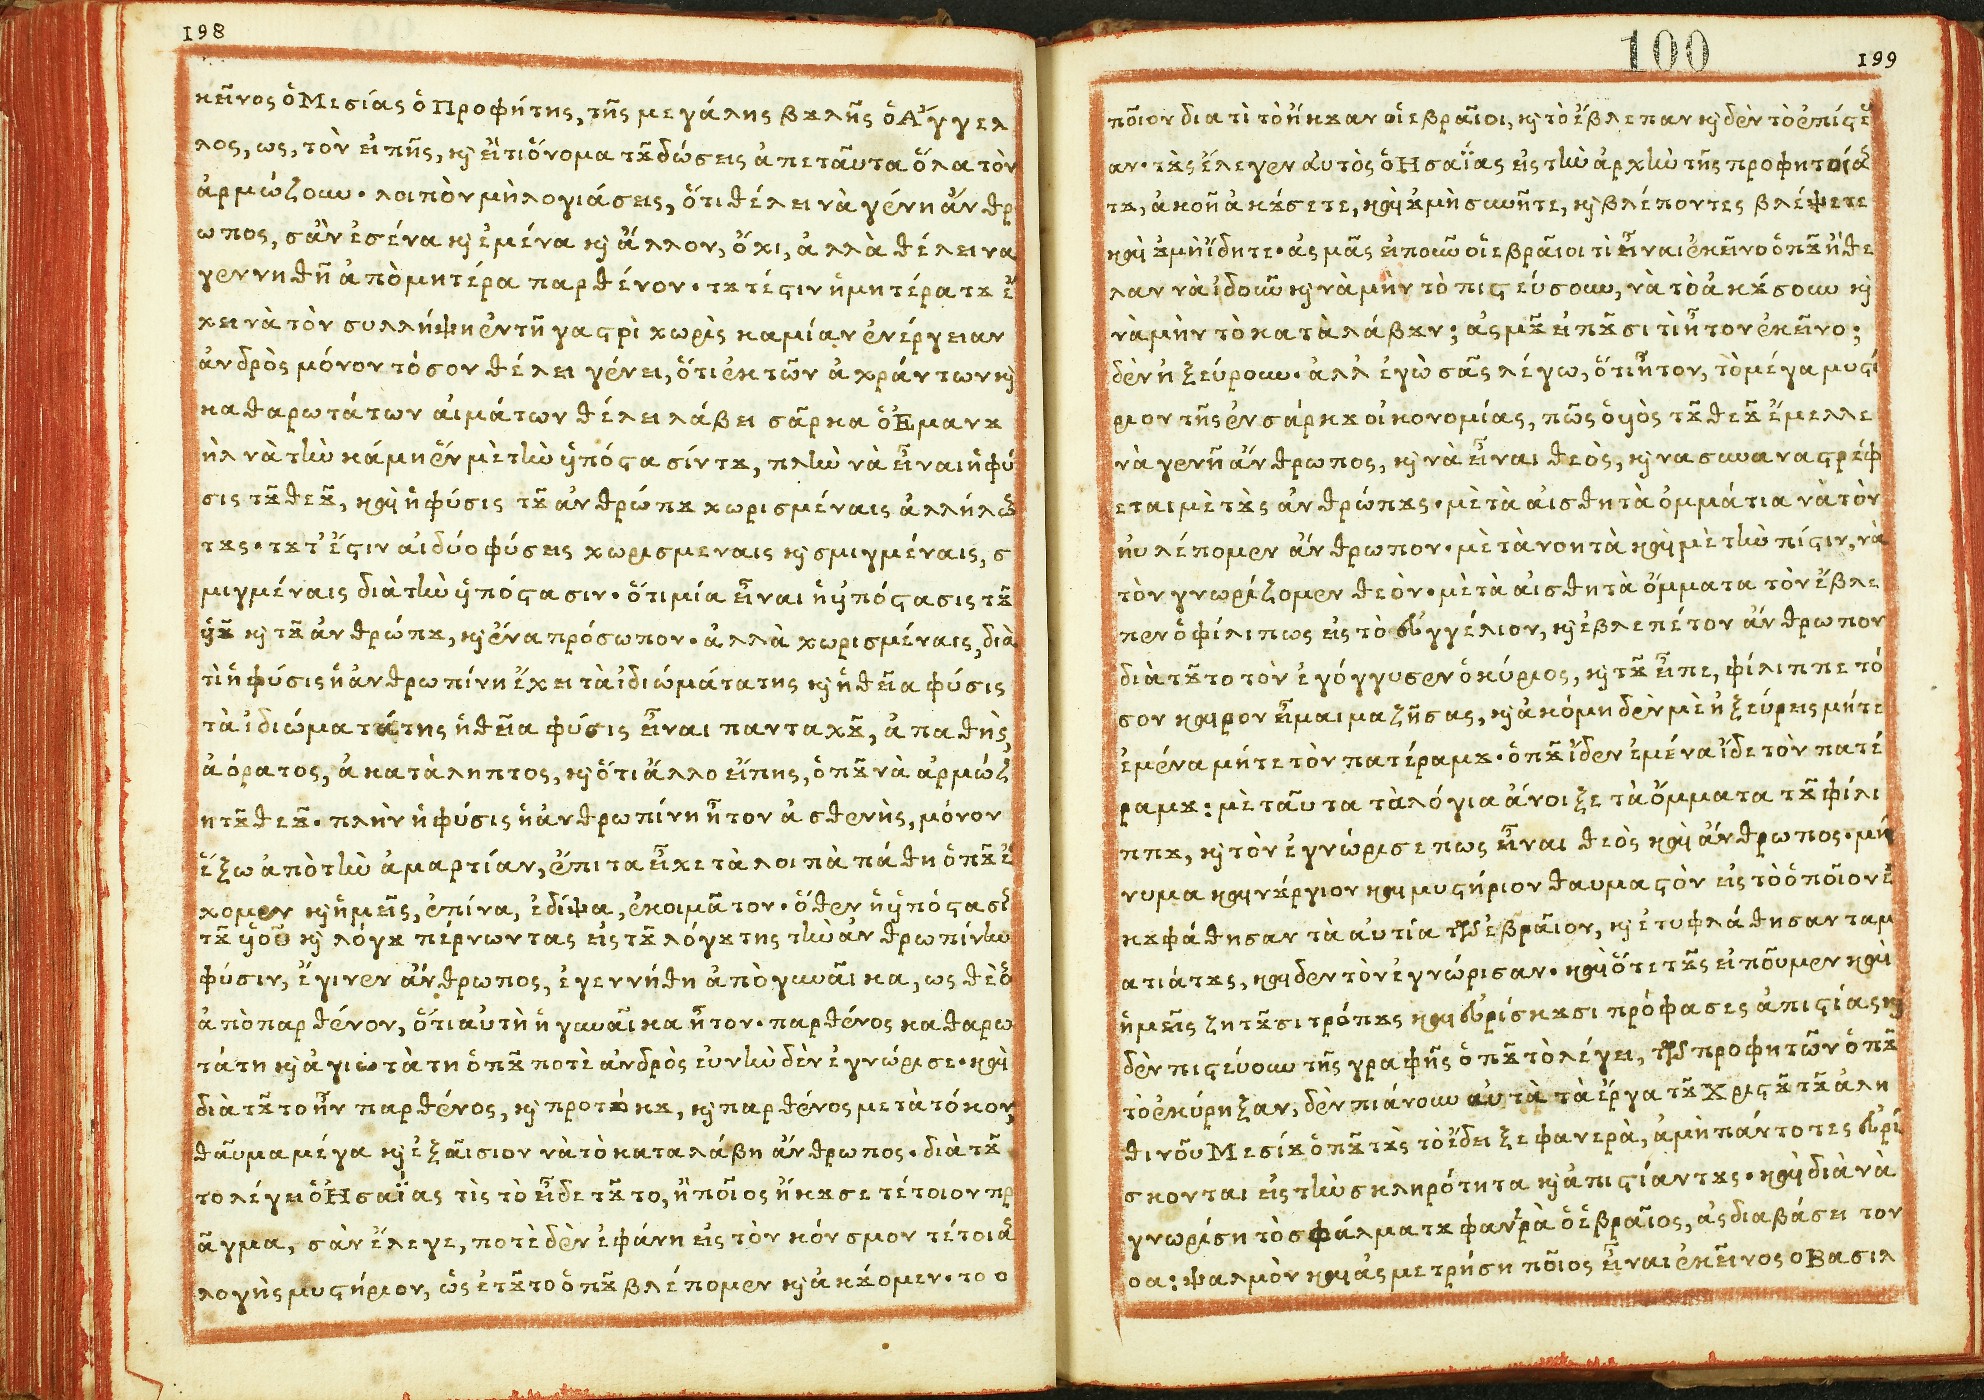 198
κεῖνος ὁ Μεσίας ὁ Προφήτης, τῆς μεγάλης βȣλῆς ὁ Ἄγγελ
λος, ως, τὸν εἰπῆς, κὶ εἴτι ὄνομα τȣ͂ δώσεις ἀπεταῦτα ὅλα τὸν
ἁρμώζουν· λοιπὸν μὴ λογιάσεις, ὅτι θέλει νὰ γένη ἄνθρ
ωπος, σἂν ἐσένα κὶ ἐμένα κὶ ἄλλον, ὄχι, ἀλλὰ θέλει να
γεννηθῆ ἀπὸ μητέρα παρθένον· τȣτέστιν ἡ μητέρα τȣ ἔ
χει νὰ τὸν συλλήψη ἐν τῆ γαστρὶ χωρὶς καμίαν ἐνέργειαν
ἀνδρὸς μόνον τόσον θέλει γένει, ὅτι ἐκ τῶν ἀχράντων κὶ
καθαρωτάτων αἱμάτων θέλει λάβει σᾶρκα ὁ Ἐμανȣ
ὴλ νὰ τὴν κάμη ἕν μὲ τὴν ὑπόστασίν τȣ, πλὴν νὰ εἶναι ἡ φύ
σις τȣ͂ θεȣ͂, καὶ ἡ φύσις τȣ͂ ἀνθρώπȣ χωρισμέναις ἀλλήλων
τȣς· τȣτ' ἔστιν αἱ δύο φύσεις χωρισμεναις κὶ σμιγμέναις, σ
μιγμέναις διὰ τὴν ὑπόστασιν· ὅτι μία εἶναι ἡ ὑπόστασις τȣ͂
ὑȣ͂ κὶ τȣ͂ ἀνθρώπȣ, κὶ ἕνα πρόσωπον· ἀλλὰ χωρισμέναις, διὰ
τὶ ἡ φύσις ἡ ἀνθρωπίνη ἔχει τὰ ἰδιώμάτα της κὶ ἡ θεῖα φύσις
τὰ ἰδιώματά της ἡ θεῖα φύσις εἶναι πανταχȣ͂, ἀπαθὴς,
ἀόρατος, ἀκατὰληπτος, κὶ ὅτι ἄλλο εἴπης, ὁπȣ͂ νὰ ἁρμώζ
η τȣ͂ θεȣ͂· πλὴν ἡ φύσις ἡ ἀνθρωπίνη ἦτον ἀσθενὴς, μόνον
ἔξω ἀπὸ τὴν ἁμαρτίαν, ἔπιτα εἶχε τὰ λοιπὰ πάθη ὁπȣ͂ ἔ
χομεν κὶ ἡμεῖς, ἐπίνα, ἐδίψα, ἐκοιμᾶτον· ὅθεν ἡ ὑπόστασι
τȣ͂ ὑοῦ κὶ λόγȣ πέρνωντας εἰς τȣ͂ λόγȣ της τὴν ἀνθρωπίνην
φύσιν, ἔγινεν ἄνθρωπος, ἐγεννήθη ἀπὸ γυναῖκα, ως θεὸ
ἀπὸ παρθένον, ὅτι αὐτὴ ἡ γυναῖκα ἦτον· παρθένος καθαρω
τάτη κὶ ἁγιωτὰτη ὁπȣ͂ ποτὲ ἀνδρὸς εὐνὴν δὲν ἐγνώρισε· καὶ
διὰ τȣ͂το ἦν παρθένος, κὶ προτόκȣ, κὶ παρθένος μετὰ τόκον,
θαῦμα μέγα κὶ ἐξαῖσιον νὰ τὸ καταλάβη ἄνθρωπος· διὰ τȣ͂
το λέγει ὁ Ἠσαΐας τὶς τὸ εἶδε τȣ͂το, ἢ ποῖος ἤκȣσε τέτοιον πρ
ᾶγμα, σὰν ἔλεγε, ποτὲ δὲν ἐφάνη εἰς τὸν κόνσμον τέτοιας
λογὴς μυστήριον, ὡς ἐτȣ͂το ὁπȣ͂ βλέπομεν κὶ ἀκȣ́ομεν· το ο
100
199
ποῖον διατὶ τὸ ἤκȣαν οἱ εβραῖοι, κὶ τὸ ἔβλεπαν κὶ δὲν τὸ ἐπίστευ
αν· τȣ̀ς ἔλεγεν αὐτὸς ὁ Ησαΐας εἰς τὴν ἀρχὴν τῆς προφητείας
τȣ, ἀκοῆ ἀκȣ́σετε, καὶ ȣ̓ μὴ συνῆτε, κὶ βλέποντες βλέψετε
καὶ ȣ̓ μὴ ἴδητε· ἀς μᾶς εἰποῦν οἱ εβραῖοι τὶ εἶναι ἐκεῖνο ὁπȣ͂ ἤθε
λαν νὰ ἰδοῦν κὶ νὰ μὴν τὸ πιστεύσουν, νὰ τὸ ἀκȣ́σουν κὶ
νὰ μὴν τὸ κατὰλάβȣν; ἀς μȣ͂ εἰπȣ͂σι τὶ ἦτον ἐκεῖνο;
δὲν ἠξεύρουν· ἀλλ ἐγὼ σᾶς λέγω, ὅτι ἦτον, τὸ μέγα μυστή
ριον τῆς ἐνσάρκȣ οἰκονομίας, πῶς ὁ ὑὸς τȣ͂ θεȣ͂ ἔμελλε
νὰ γενῆ ἄνθρωπος, κὶ νὰ εἶναι θεὸς, κὶ να συναναστρέφ
εται μὲ τȣ̀ς ἀνθρώπȣς· μὲ τὰ αἰσθητὰ ὀμμάτια νὰ τὸν
ἠυλέπομεν ἄνθρωπον· μὲ τὰ νοητὰ καὶ μὲ τὴν πίστιν, νὰ
τὸν γνωρίζομεν θεόν· μὲ τὰ αἰσθητὰ ὄμματα τὸν ἔβλε
πεν ὁ φίλιπως εἰς τὸ εὐγγέλιον, κὶ ἐβλεπέ τον ἄνθρωπον
διὰ τȣ͂το τὸν ἐγόγγυσεν ὁ κύριος, κὶ τȣ͂ εἶπε, φίλιππε τό
σον καιρον εἶμαι μαζῆ σας, κὶ ἀκόμη δὲν μὲ ἠξεύρεις μήτε
ἐμένα μήτε τὸν πατέρα μȣ· ὁπȣ͂ ἴδεν ἐμένα ἴδε τὸν πατέ
ρα μȣ: μὲ ταῦτα τὰ λόγια ἄνοιξε τὰ ὄμματα τȣ͂ φίλι
ππȣ, κὶ τὸν ἐγνώρισε πως εἶναι θεὸς καὶ ἄνθρωπος· μή
νυμα καινȣ́ργιον καὶ μυστήριον θαυμαστὸν εἰς τὸ ὁποῖον ἐ
κȣφάθησαν τὰ αὐτία τῶν εβραῖον, κὶ ἐτυφλάθησαν τα μ
ατιά τȣς, καὶ δεν τὸν ἐγνώρισαν· καὶ ὅτε τȣ͂ς εἰποῦμεν καὶ
ἡμεῖς ζητȣ͂σι τρόπȣς καὶ εὑρίσκȣσι πρόφασες ἀπιστίας κὶ
δὲν πιστεύουν τῆς γραφῆς ὁπȣ͂ τὸ λέγει, τῶν προφητῶν ὁπȣ͂
τὸ ἐκύρηξαν, δὲν πιάνουν αυτὰ τὰ ἔργα τȣ͂ Χριστȣ͂ τȣ͂ ἀλη
θινοῦ Μεσίȣ ὁπȣ͂ τȣ̀ς τὸ ἔδειξε φανερὰ, ἀμὴ πάντοτες εὑρί
σκονται εἰς τὴν σκληρότητα κὶ ἀπιστίαν τȣς· καὶ διὰ νὰ
γνωρίση τὸ σφάλμα τȣ φανερὰ ὁ ἑβραῖος, ἀς διαβάσει τον
οα: ψαλμὸν καὶ ἀς μετρήση ποῖος εἶναι ἐκεῖνος ο Βασιλ